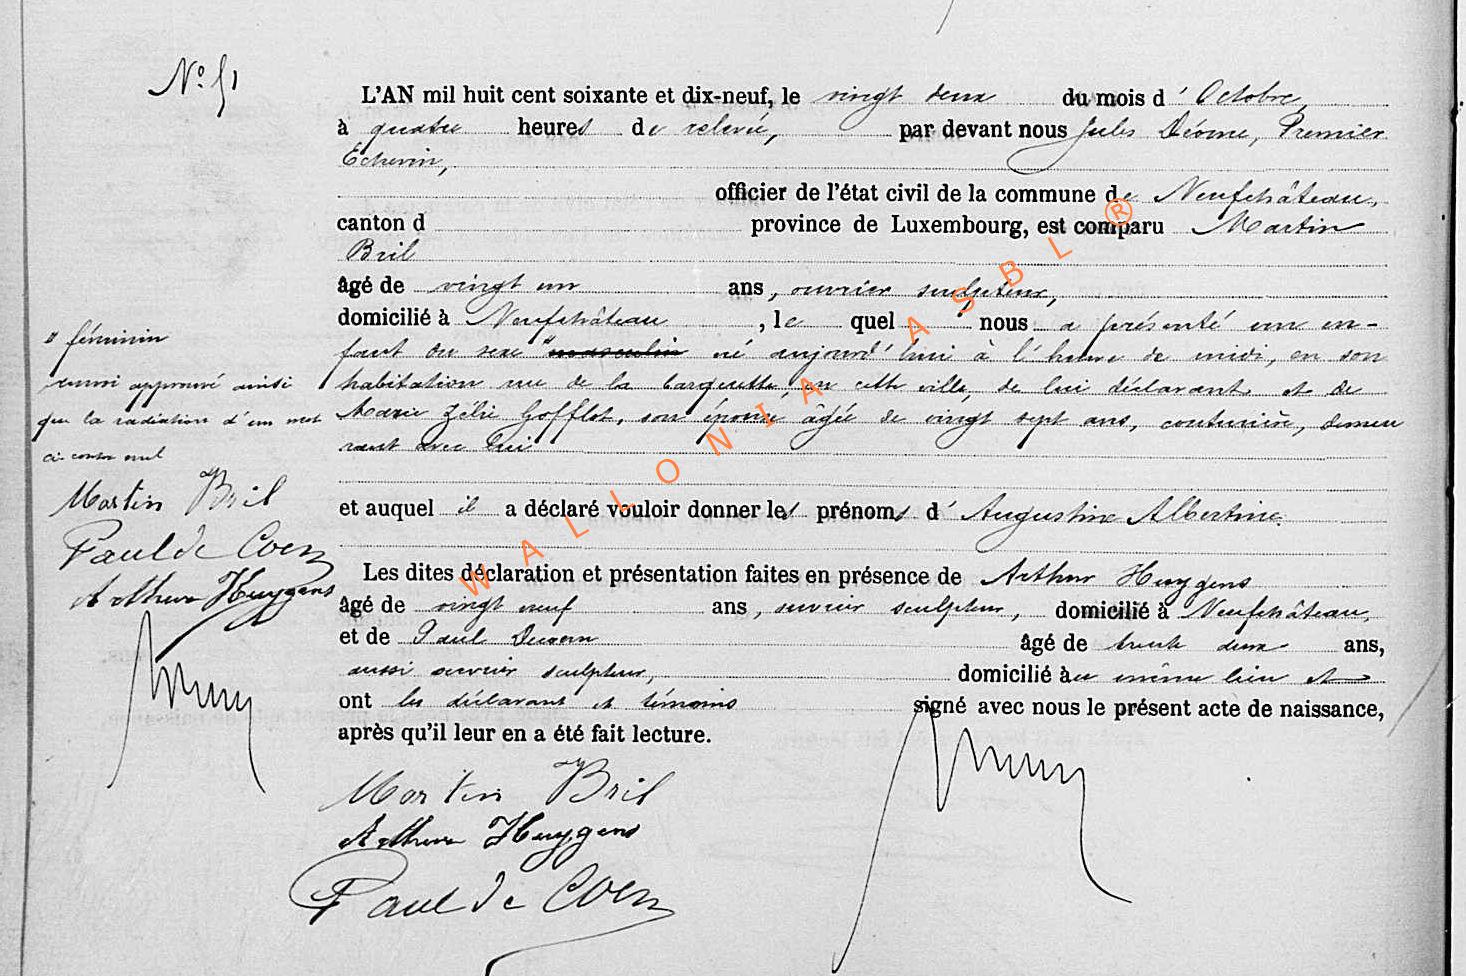 N° 51
L'AN mil huit cent soixante et dix-neuf, le vingt deux du mois d'Octobre,
à quatre heures de relevée, par devant nous Jules Déome, Premier
Echevin,
officier de l'état civil de la commune de Neufchâteau,
canton d province de Luxembourg, est comparu Martin
Bril
âgé de vingt un ans, ouvrier sculpteur,
domicilié à Neufchâteau, le quel nous a présenté un en-
fant du sexe masculin né aujourd'hui à l'heure de midi, en son
habitation rue de la en cette ville, de lui déclarant et de
Marie Zélie Gofflot, son épouse, âgée de vingt sept ans, couturière, demeu
rant avec lui
et auquel il a déclaré vouloir donner les prénoms d'Augustine Albertine.
Les dites déclaration et présentation faites en présence de Arthur Huygens
âgé de vingt neuf ans, ouvrier sculpteur, domicilié à Neufchâteau,
et de Paul Decoen âgé de trente deux ans,
aussi ouvrier sculpteur, domicilié au même lieu et
ont les déclarant et témoins signé avec nous le présent acte de naissance,
après qu'il leur en a été fait lecture.
Martin Bril
Arthur Huygens
Paul de Coen
" féminin
renvoi approuvé ainsi
que la radiation d'un mot
ci-contre nul
Martin Bril
Paul de Coen
Arthur Huygens
WALLONIA ASBL ®